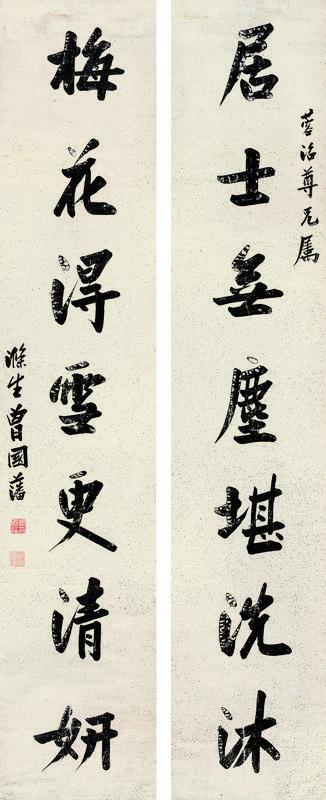 尊兄属
居士無塵堪洗沐
梅花得雪更清妍
滌生曾國藩